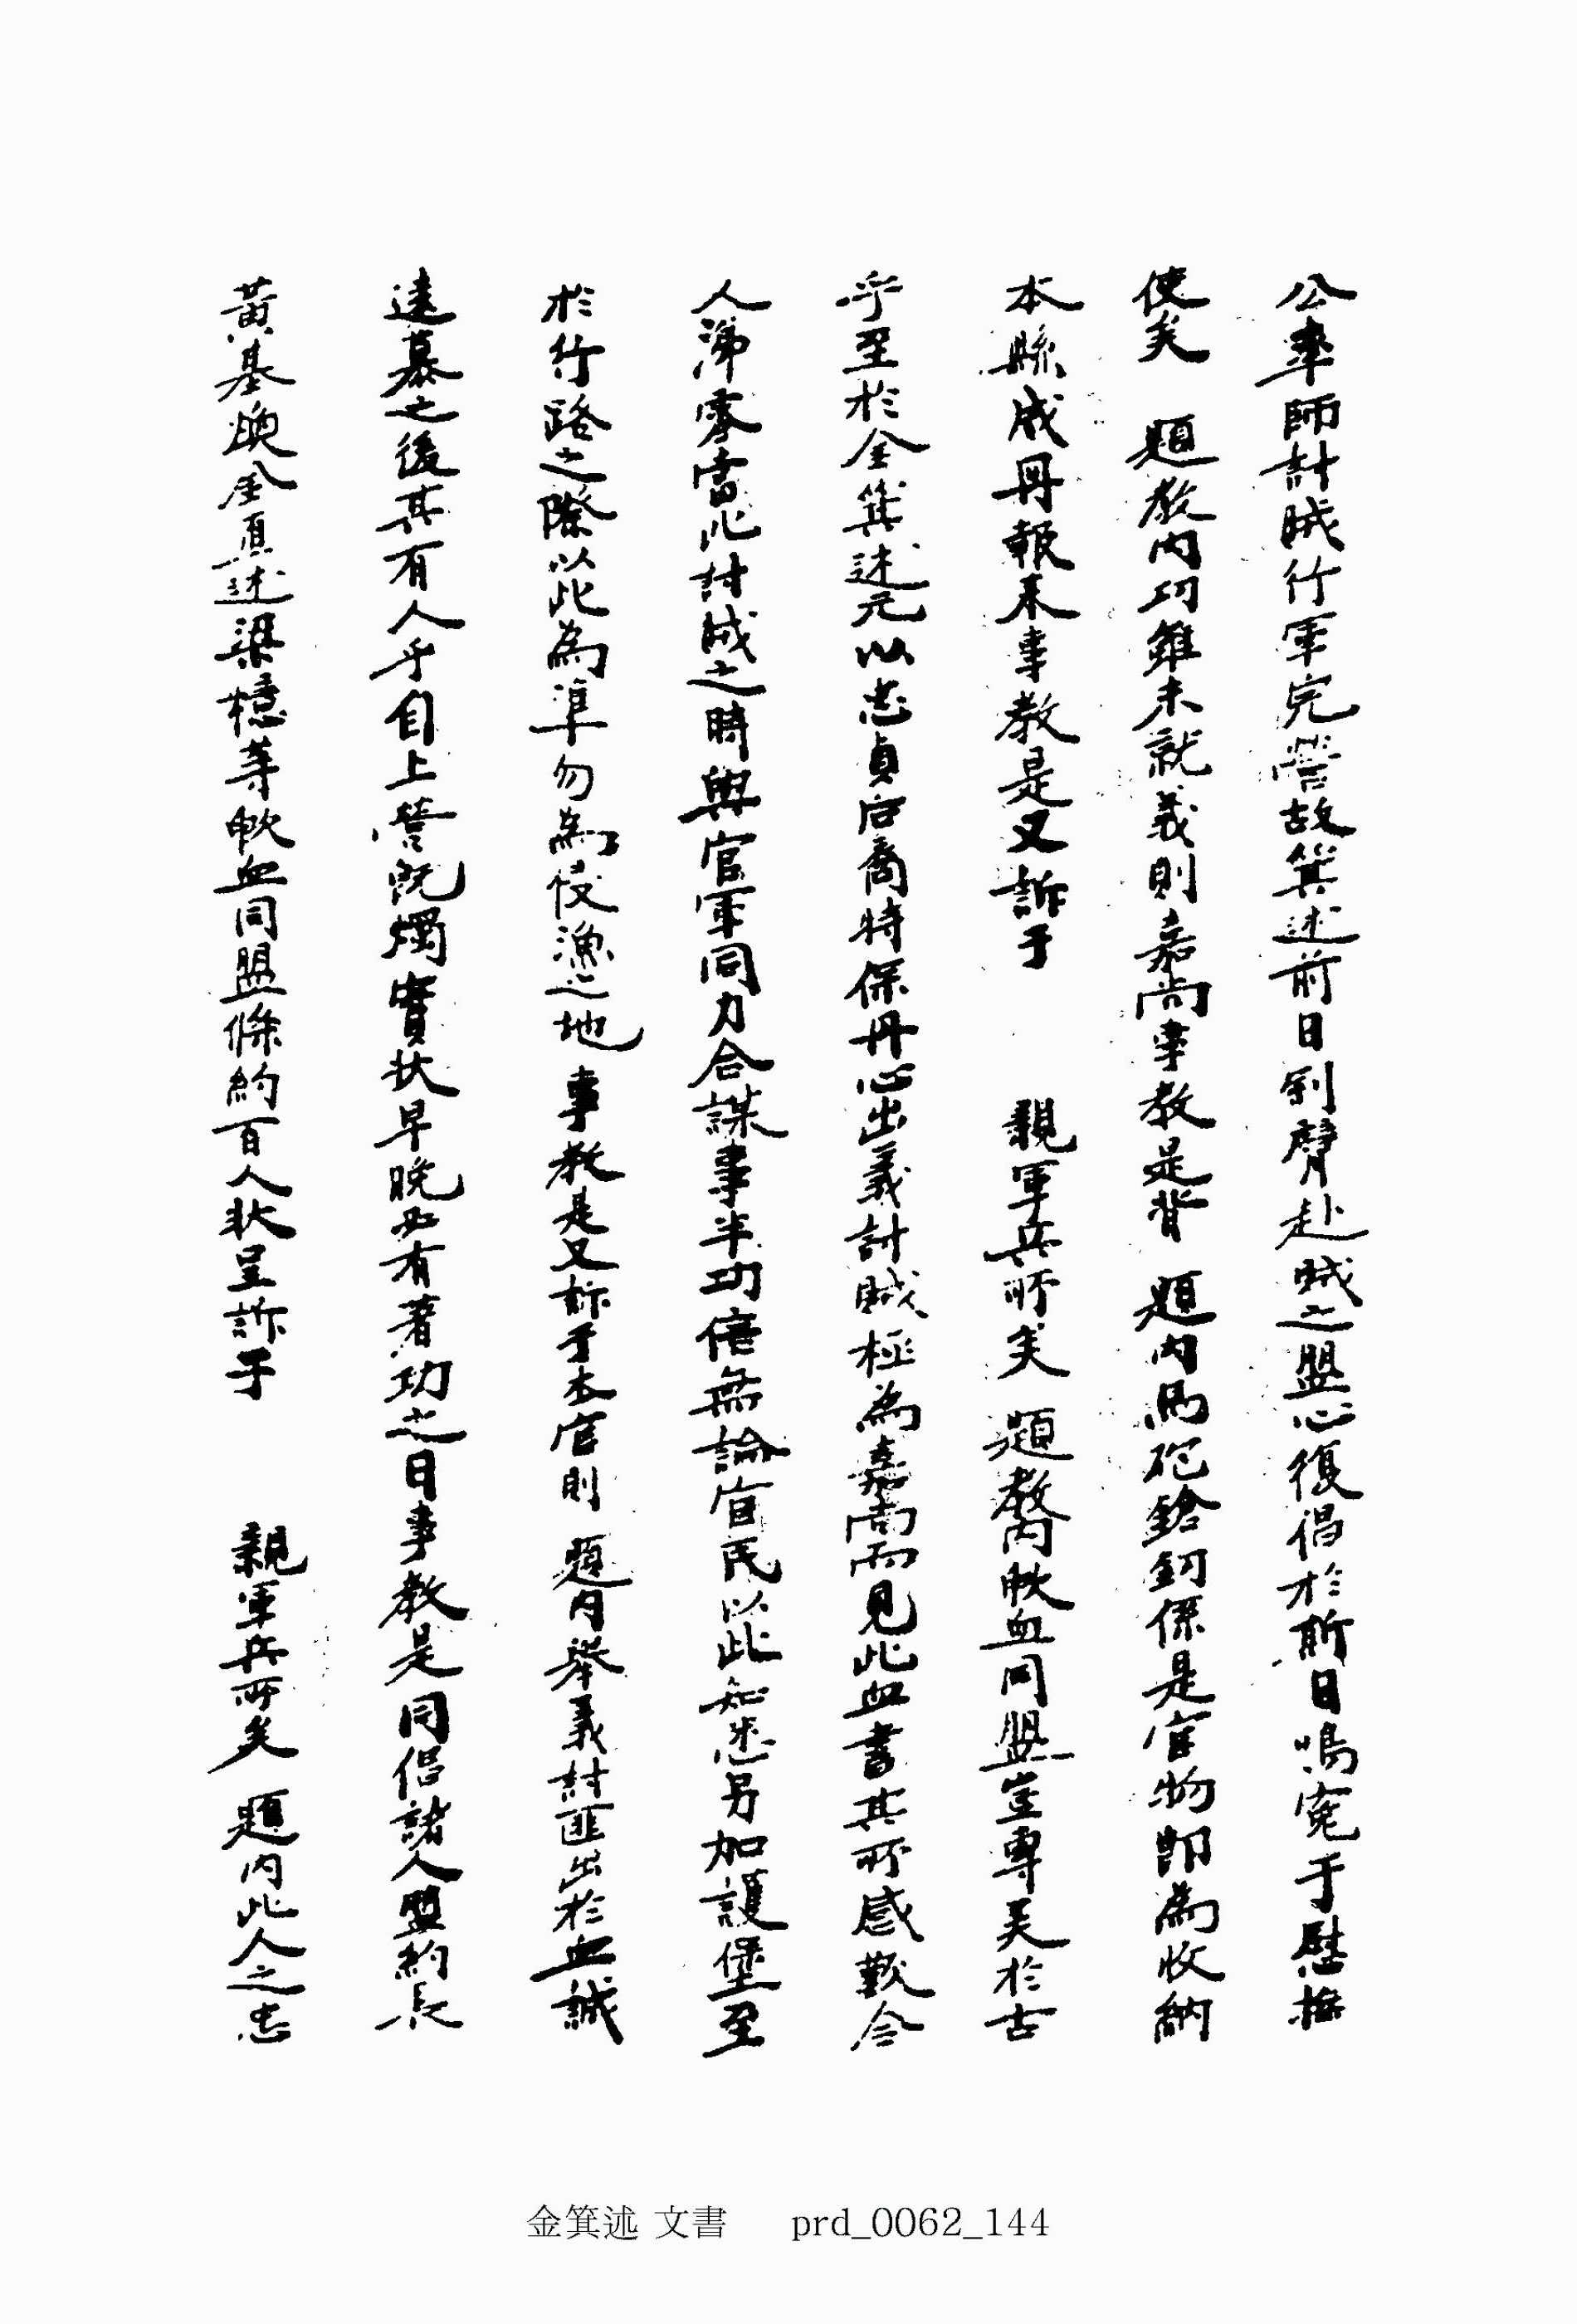 公率師討賊行軍完營故箕述前日刺臂赴賊之盟心復倡於斯日鳴寃于慰撫
使矣 題教內功雖未就義則嘉尙事教是背 題內馬砲鎗釖係是官物卽爲收納
本縣成冊報來事教是又訴于 親軍兵所矣 題教內歃血同盟豈專美於古
乎至於金箕述元以忠貞后裔特保丹心出義討賊極爲嘉尙而見此血書其所感歎令
人涕零當此討賊之時與官軍同力合謀事半功倍無論官民以此知悉另加護堡至
於行路之際以此爲準勿爲侵漁之地 事教是又訴于本官則 題內擧義討匪出於血誠
遠慕之後其有人乎自上營旣燭實狀早晩必有著功之日事教是同倡諸人盟約長
黃基煥金直述梁檍等歃血同盟條約百人狀呈訴于 親軍兵所矣 題內此人之忠
金箕述 文書 prd_0062_144